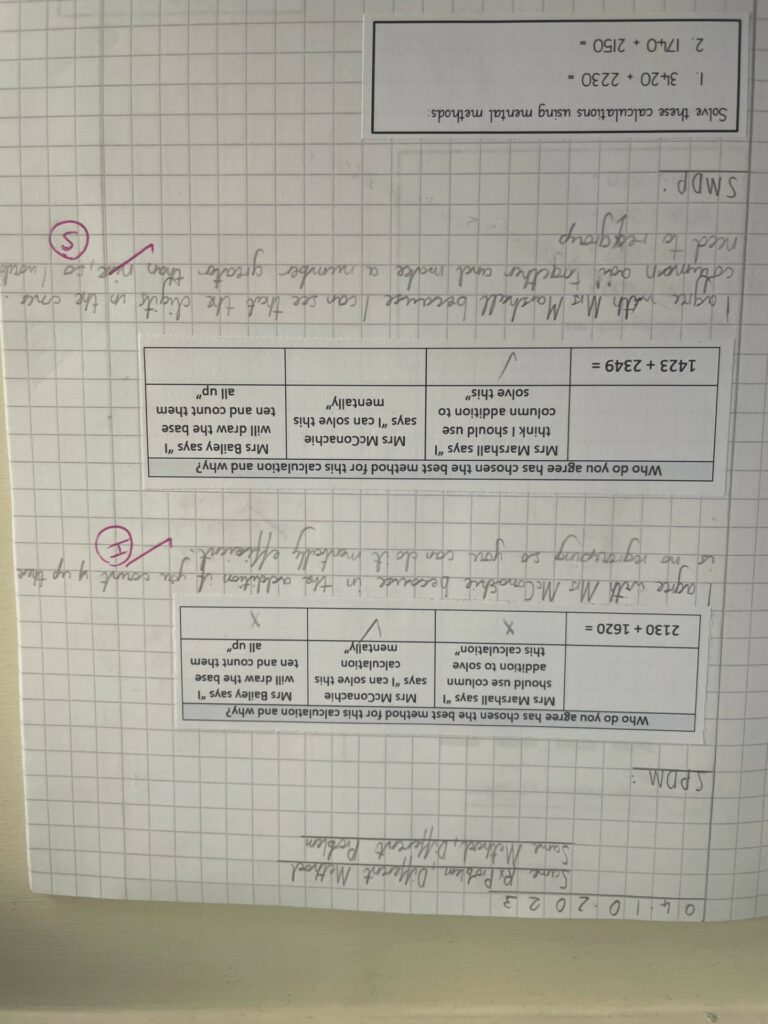 04.10.2023
Same Problem, Different Method
Same Method, Different Problem
SPDM:
Who do you agree has chosen the best method for this calculation and why?
Mrs Marshall says "I should use column addition to solve this calculation"
Mrs McConachie says "I can solve this calculation mentally"
Mrs Bailey says "I will draw the base ten and count them all up"
2130 + 1620 =
x ✓ x
I agree with Mrs McConachie because in the addition if you count y up ther
is no regrouping so you can do it mentally efficient.
I
Who do you agree has chosen the best method for this calculation and why?
Mrs Marshall says "I think I should use column addition to solve this"
Mrs McConachie says "I can solve this mentally"
Mrs Bailey says "I will draw the base ten and count them all up"
1423 + 2349 =
✓
I agree with Mrs Marshall because I can see that the digits in the ones
column add together and make a number greater than nine, so I would
need to regroup
S
SMDP:
Solve these calculations using mental methods:
1. 3420 + 2230 =
2. 1740 + 2150 =